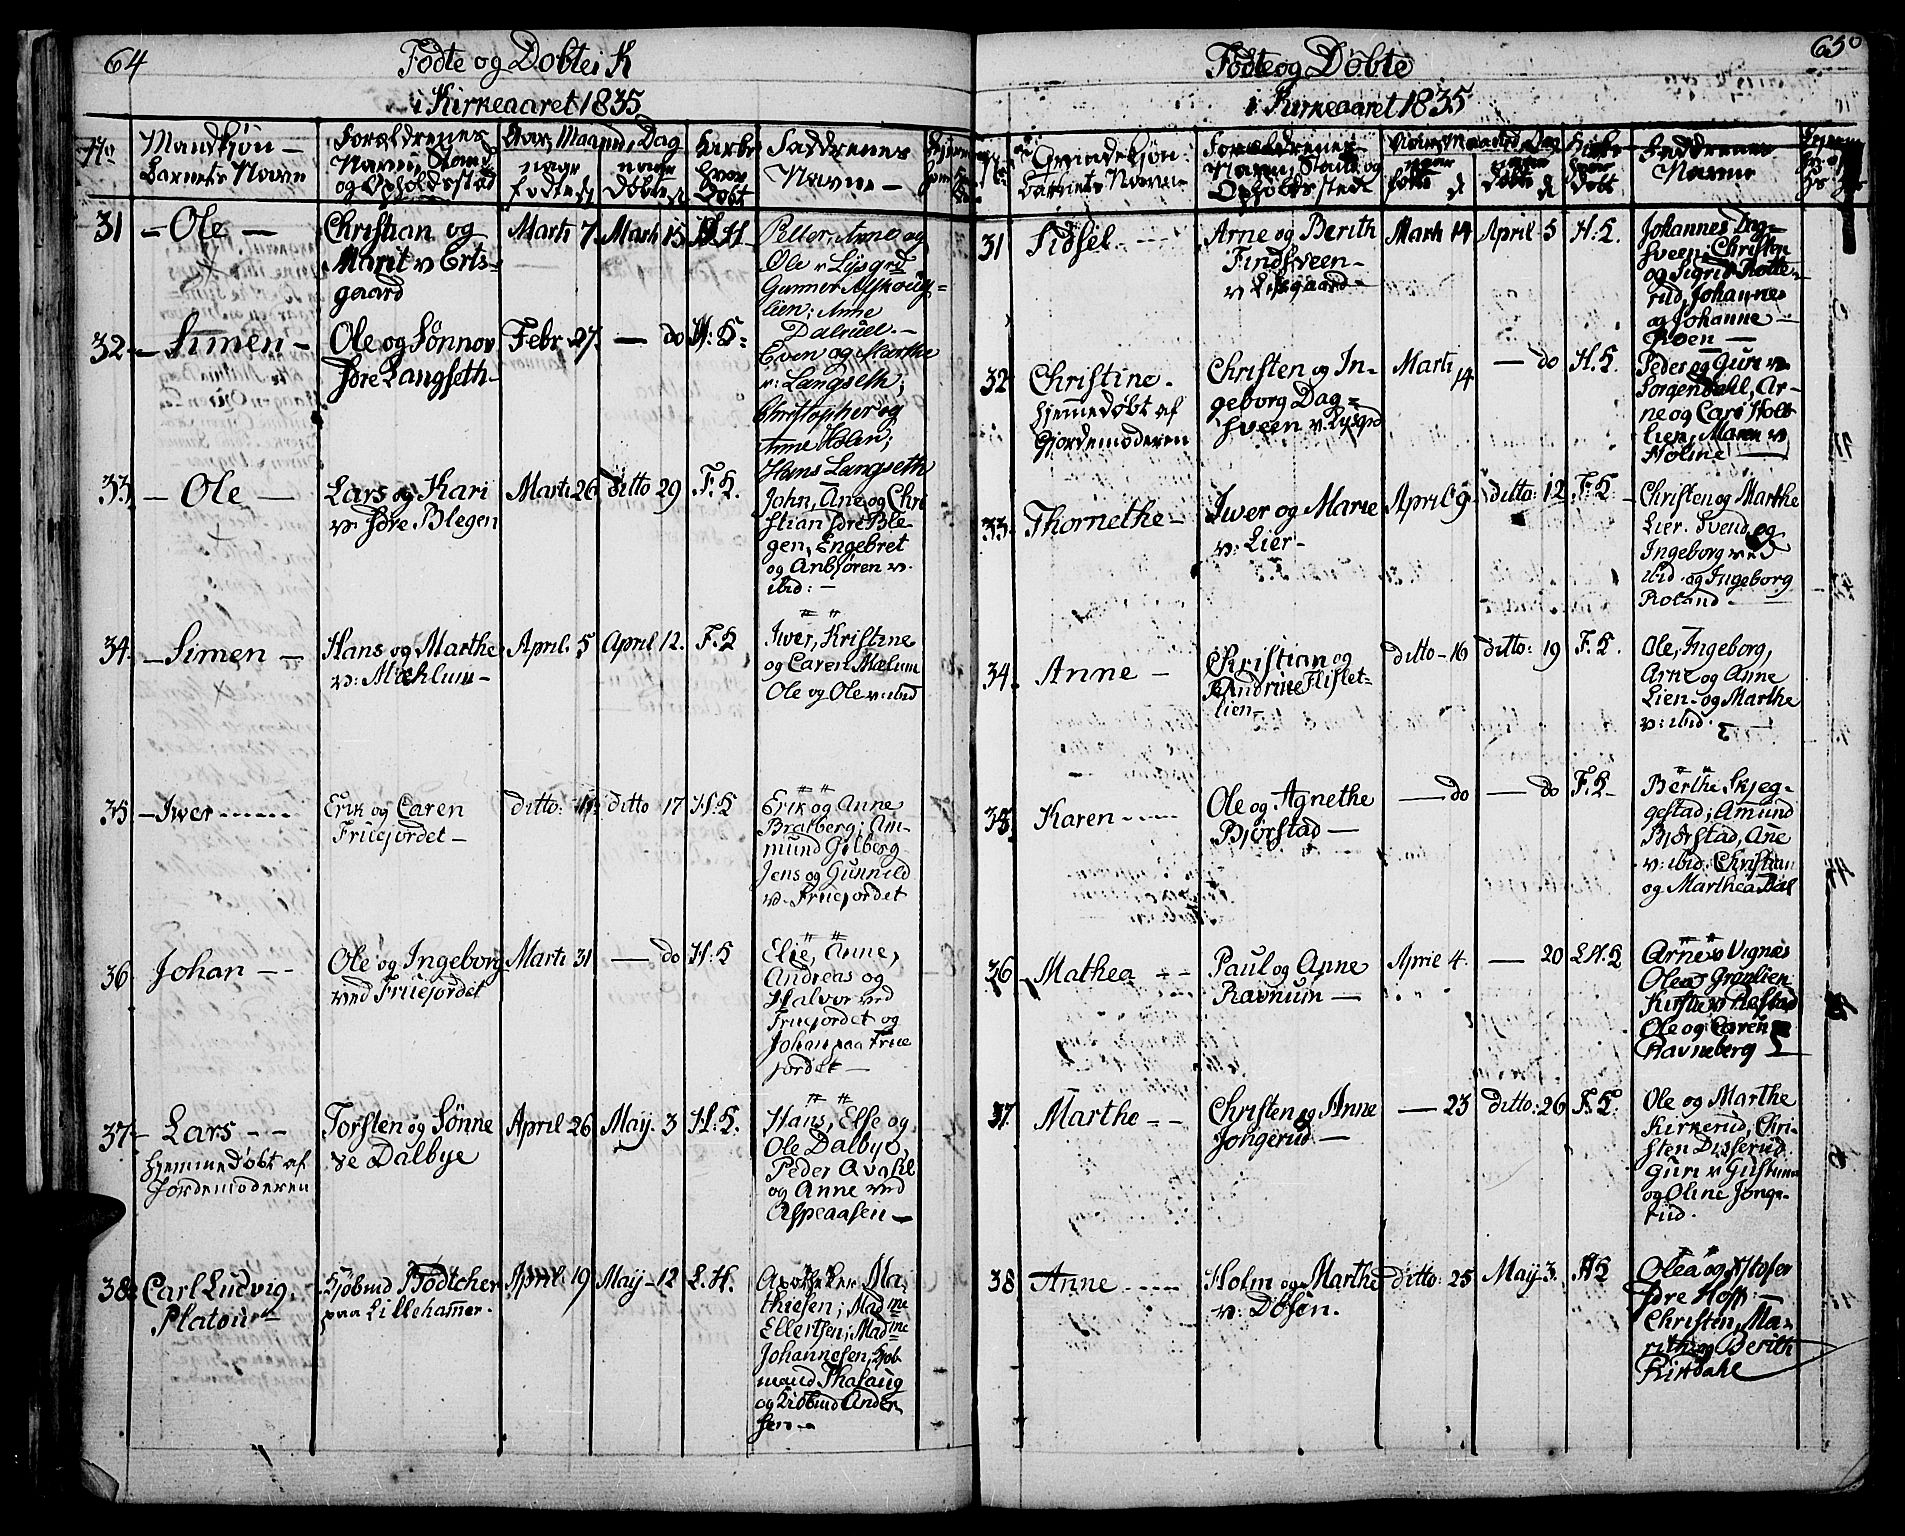 64
Fødte og Døbte i K
i Kirkeaaret 1835
No
Mandkjøn —
Barnets Navn
Forældrenes
Navn, Stand
og Opholdsstæd
Aar, Maaned, Dag
naar
fødte
naar
Døbte
Kirke
hvor
Døbt
Faddrenes
Navne —
31 — Ole —
Christian og
Marit v Erts-
gaard
Marti 7
Marti 15
H. H.
Peder, Anne og
Ole v Lysgrd
Gunner Asshoug-
lien; Anne
Dalsuel. —
32 — Simen —
Ole og Sønnov
Søre Langseth —
Febr. 27.
— do
H: K:
Even og Marthe
v: Langseth;
Christopher og
Anne Holen;
Hans Langseth
33 — Ole —
Lars og Kari
v: Søre Blegen
Marti 26
ditto 29
F. K.
John, Ane og Chri
stian Søre Ble-
gen, Engebret
og Anbjøren v.
ibid: —
34. — Simen —
Hans og Marthe
v: Mæhlum —
April. 5
April 12.
F. K
Iver, Kristine
og Caren Mælum
Ole og Ole v: ibid
35 — Iwer
Erik og Caren
Fruejordet —
ditto:
ditto 17
H: K
Erik og Anne
Bratberg; Am-
mund Gilberg
Jens og Gunnild
v. Fruejordet
36 Johan —
Ole og Ingeborg
ved Fruejordet
Marti 31
— do
H: K
Elie, Anne,
Andreas og
Halvor ved
Fruejordet og
Johan paa Frue
jordet —
37 — Lars —
hjemmedøbt af
Jordemoderen
Torsten og Sønne
ve Dalbye
April 26
May. 3
H: K.
Hans, Else og
Ole Dalbye,
Peder
og Anne ved
Aspeaasen —
38: Carl Ludvig
Platour
Kjøbmd Bødtcher
paa Lillehamer.
April. 19
May — 12
L. H.
Apotheker Ma-
thiesen; Madme
Ellertsen; Madme
Johannesen, Kjøb-
mand Thalaug
og Kiøbmd Ander
sen —
650
Fødte og Døbte
i Kirkeaaret 1835
No
Qvindekjøn:
Barnets Navn
Forældrenes
Navn, Stand og
Opholdssted
Aar, Maaned, Dag
naar
fødte
naar
Døbte
Kirke
hvor
Døbt
Faddrenes
Navne
31 Sidsel —
Arne og Berith
Findsveen —
v Lysgaard —
Marti 14
April 5
H: K.
Johannes Dag-
sveen; Christen
og Sigrid Rotte-
rud, Johannes
og Johanne —
Roen —
32 Christine.
hjemmedøbt af
Gjordemoderen
Christen og In-
geborg Dag-
sveen v. Lysgrd
Marti
14
— do
H. K.
Peder og Guri v
Sorgendahl, Ar-
ne og Cari Holt
lien, Maren v
Holme —
33. Thornethe —
Iwer og Marie
v: Lier —
April 9.
ditto: 12
F: K
Christen og Marthe
Lier. Svend og
Ingeborg ved
ibid. og Ingeborg
Roland —
34. Anne —
Christian og
Andrine Flislet-
lien —
ditto — 16
ditto: 19
F. K.
Ole, Ingeborg,
Arne og Anne
Lien — og Marthe
v: ibid.
35. Karen
Ole og Agnethe
Bjørstad —
— do
— do
F. K —
Berthe Skjeg-
gestad; Amund
Bjørstad, Ane
v: ibid: Christian
og Marthea Dal
36 Mathea —
Paul og Anne
Ravnum —
April 4.
— 20
L. H. K
Arne v Vignæs
Olea Grønlien
Kirstie v
Ole og Caren
Ravneberg
37. Marthe —
Christen og Anne
Jongerud. —
— 23
ditto: 26
F. K:
Ole og Marthe
Kirkerud, Chri-
sten Disserud
Guri v
og Oline Jonge-
rud.
38 Anne
Holm og Marthe
v: Døsen.
ditto: 25
May. 3.
H K
Olea og
Søre Hoff —
Christen, Ma-
rith og Berith